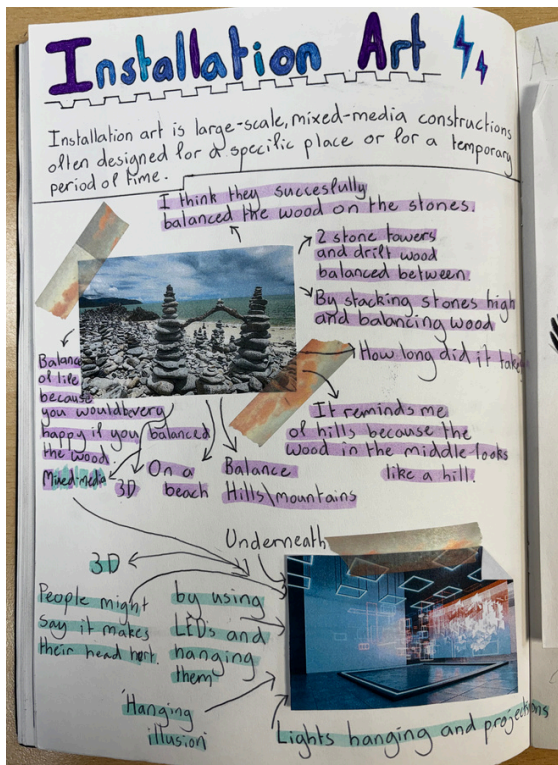 Installation Art
Installation art is large-scale, mixed-media constructions
often designed for a specific place or for a temporary
period of time.
I think they succesfully
balanced the wood on the stones.
2 stone towers
and drift wood
balanced between
By stacking stones high
and balancing wood
How long did it take
Balance
of life
because
you would be very
happy if you balanced
the wood
It reminds me
of hills because the
wood in the middle looks
like a hill.
Mixed media
3D
On a
beach
Balance
Hills\mountains
Underneath
3D
People might
say it makes
their head hurt.
by using
LEDs and
hanging
them
'Hanging
illusion'
Lights hanging and projections
A